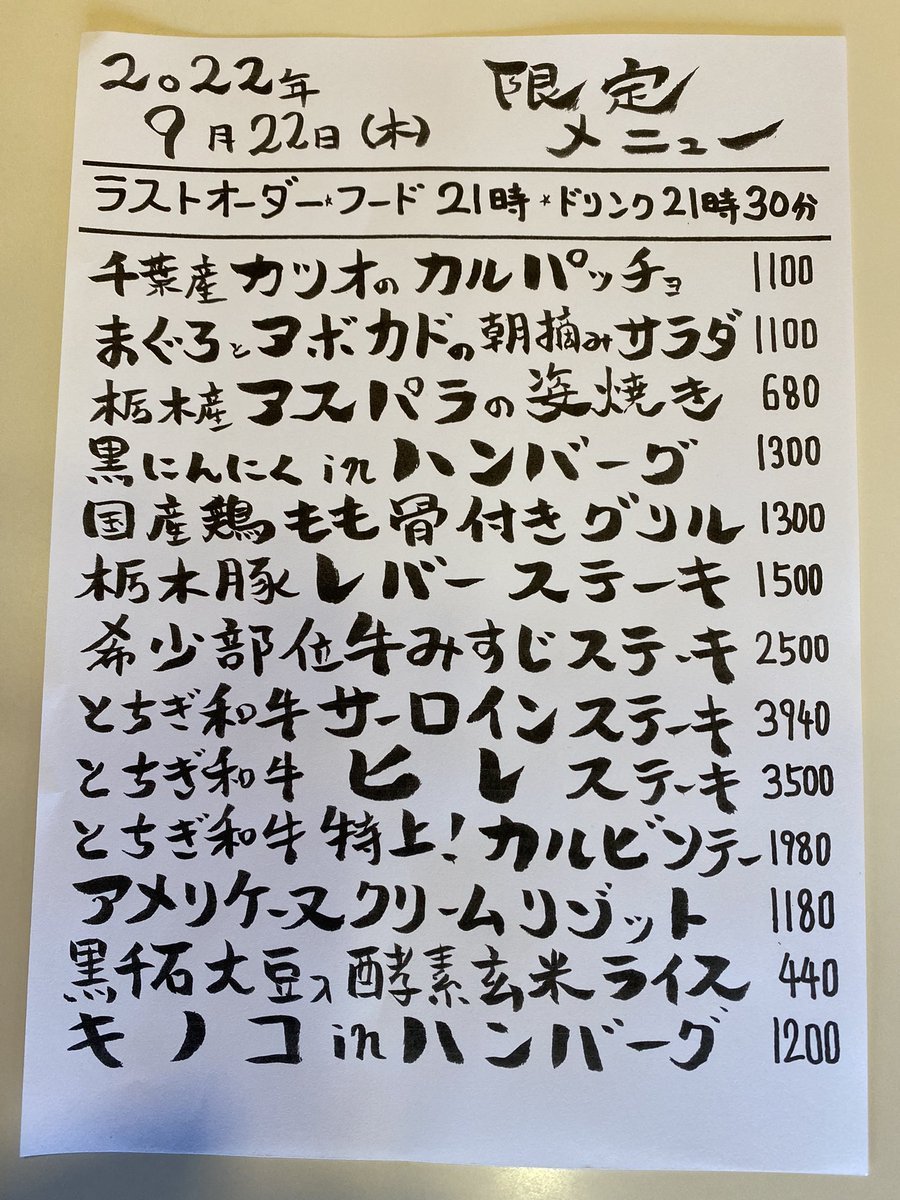 2022年 限定
9月22日(木) メニュー
ラストオーダー*フード21時*ドリンク21時30分
千葉産カツオのカルパッチョ 1100
まぐろとアボカドの朝摘みサラダ 1100
栃木産アスパラの姿焼き 680
黒にんにくinハンバーグ 1300
国産鶏もも骨付きグリル 1300
栃木豚レバーステーキ 1500
希少部位牛みすじステーキ 2500
とちぎ和牛サーロインステーキ 3940
とちぎ和牛ヒレステーキ 3500
とちぎ和牛特上!カルビソテー 1980
アメリケーヌクリームリゾット 1180
黒千石大豆入酵素玄米ライス 440
キノコinハンバーグ 1200